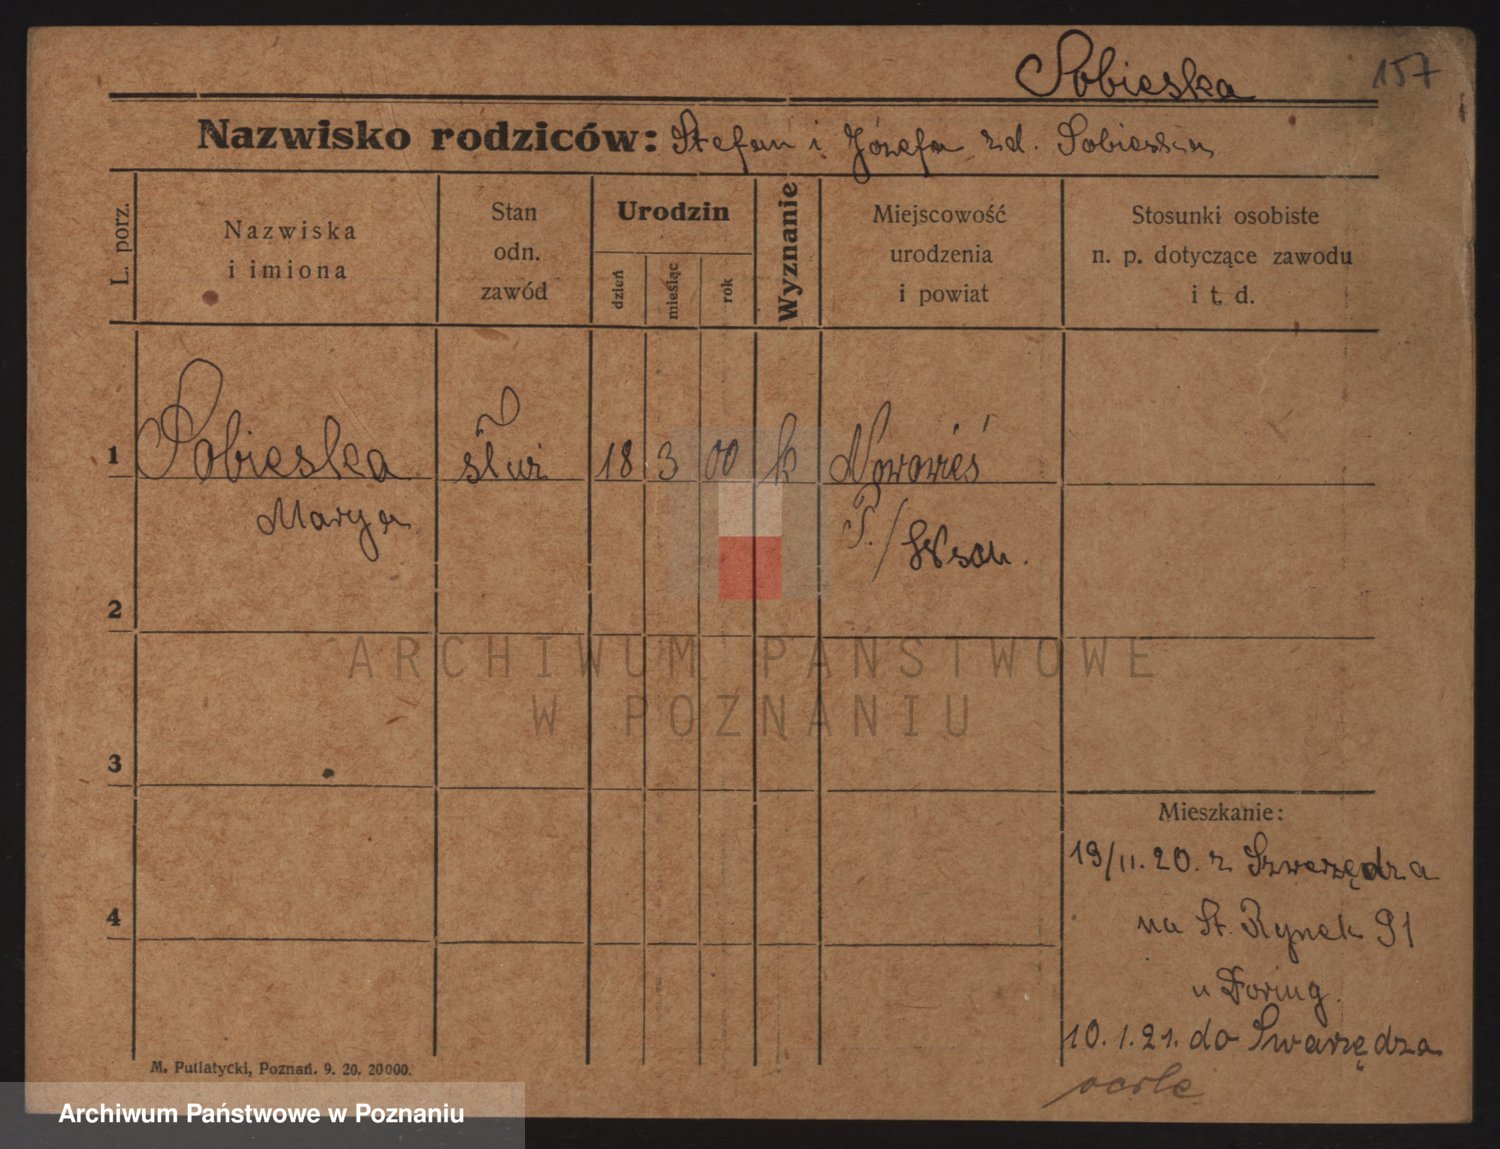 Sobieska 157
Nazwisko rodziców: Stefan i Józefa zd. Sobieska
L. porz.
Nazwiska
i imiona
Stan
odn.
zawód
Urodzin
dzień
miesiąc
rok
Wyznanie
Miejscowość
urodzenia
i powiat
Stosunki osobiste
n. p. dotyczące zawodu
i t. d.
1 Sobieska służ 18 3 00 k Nowowieś
Marya P./
2
ARCHIWUM PAŃSTWOWE
W POZNANIU
3
Mieszkanie:
19/11.20. z Szwarzędza
4
na St. Rynek 91
u Doring.
10.1.21. do Swarzędza
M. Putiatycki, Poznań. 9. 20. 20000.
Archiwum Państwowe w Poznaniu